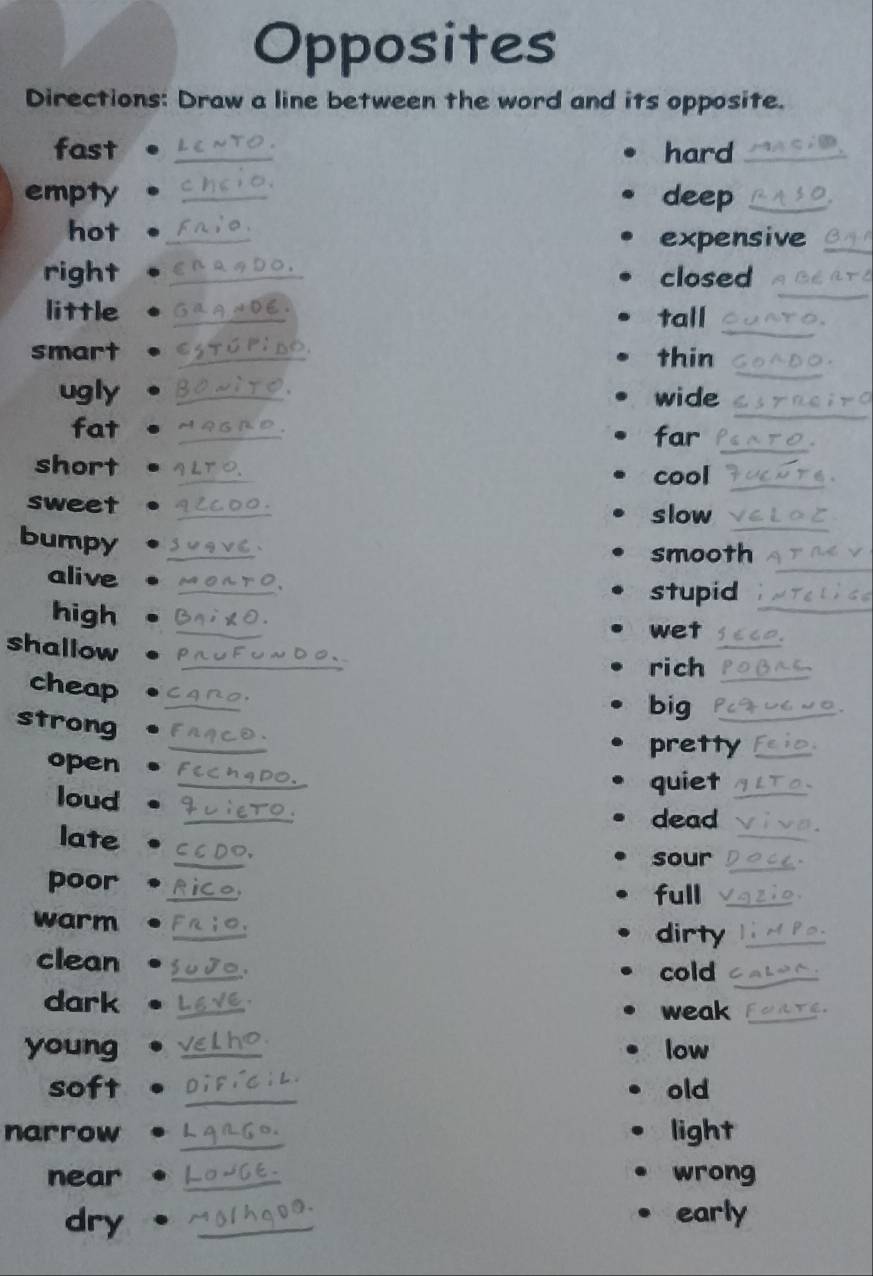 Opposites
Directions: Draw a line between the word and its opposite.
fast • LENTO. • hard MACiO
empty • cheio. • deep RASO.
hot • FRiO. • expensive BAR
right • ERRADO. • closed ABERTO
little • GRANDE. • tall CURTO.
smart • ESTÚPiDO. • thin GORDO.
ugly • BONiTO. • wide ESTREiTO
fat • MAGRO. • far PERTO.
short • ALTO. • cool QUENTE.
sweet • AZEDO. • slow VELOZ
bumpy • SUAVE. • smooth ATREV
alive • MORTO. • stupid iNTELiGE
high • BAiXO. • wet SECO.
shallow • PRUFUNDO. • rich POBRE
cheap • CARO. • big PEQUENO.
strong • FRACO. • pretty FEiO.
open • FECHADO. • quiet ALTO.
loud • QUiETO. • dead ViVO.
late • CEDO. • sour DOCE.
poor • RiCO. • full VAZiO.
warm • FRiO. • dirty liMPO.
clean • SUJO. • cold CALOR.
dark • LEVE. • weak FORTE.
young • VELhO. • low
soft • DiFíCiL. • old
narrow • LARGO. • light
near • LONGE. • wrong
dry • MOlhADO. • early